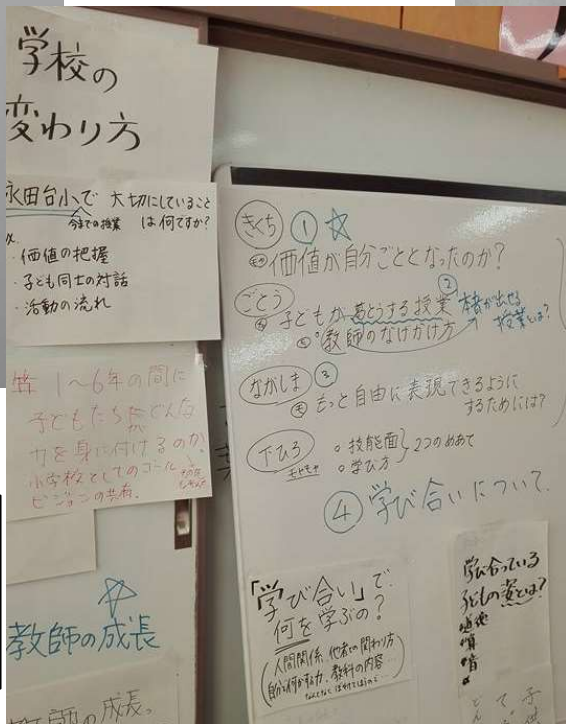 学校の
変わり方
永田台小で 大切にしていること
今までの授業 は何ですか?
・価値の把握
・子ども同士の対話
・活動の流れ
1〜6年の間に
子どもたちにどんな
力を身に付けるのか。
小学校としてのゴール
ビジョンの共有。
教師の成長
教師の成長。
きくち ① ☆
価値が自分ごととなったのか?
ごとう ②
子どもが 授業 本音が出せる
授業とは?
教師のなげかけ方
ながしま ③
もっと自由に表現できるように
するためには?
下ひろ ・技能面
・学び方 2つのめあて
④ 学び合いについて
「学び合い」で
何を学ぶの?
人間関係、他者との関わり方
教科の内容…
学び合っている
子どもの姿とは?